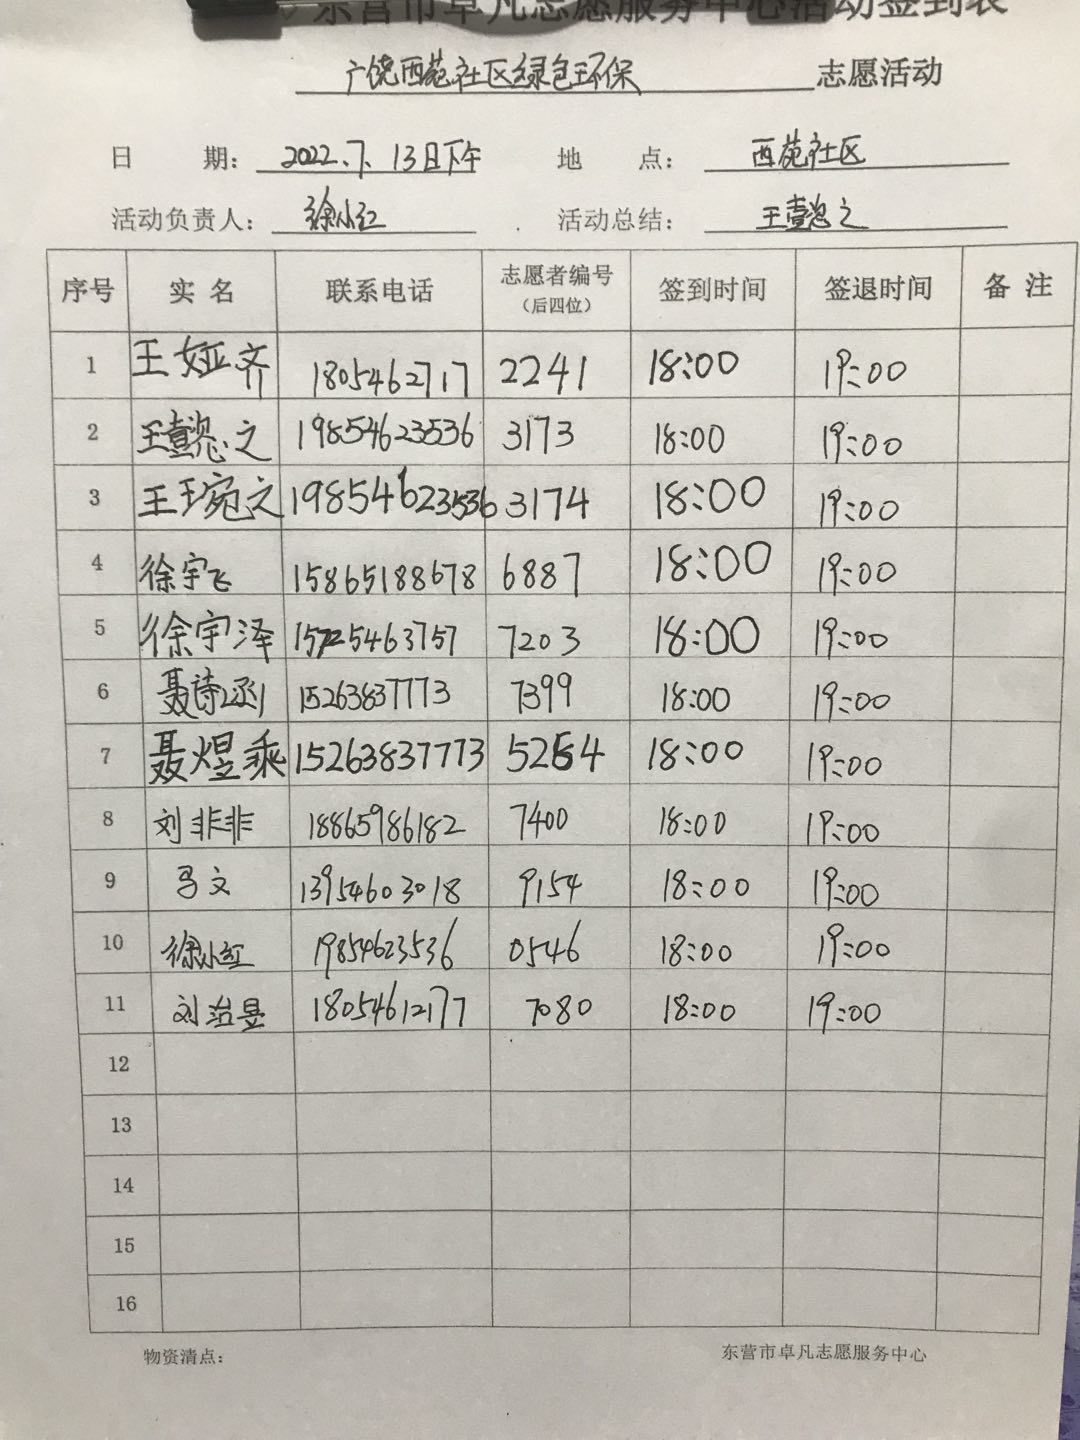 东营市卓凡志愿服务中心活动签到表
广饶西苑社区绿色环保 志愿活动
日 期: 2022.7.13日下午 地 点: 西苑社区
活动负责人: 徐小红 活动总结: 王懿之
序号 实名 联系电话 志愿者编号（后四位） 签到时间 签退时间 备注
1 王娅齐 1805462717 2241 18:00 19:00
2 王懿之 19854623536 3173 18:00 19:00
3 王琬之 19854623536 3174 18:00 19:00
4 徐宇飞 15865188678 6887 18:00 19:00
5 徐宇泽 15725463757 7203 18:00 19:00
6 聂诗 15263837773 7399 18:00 19:00
7 聂煜乘 15263837773 18:00 19:00
8 刘非非 18865986182 7400 18:00 19:00
9 马文 13954603018 9154 18:00 19:00
10 徐小红 19854623536 0546 18:00 19:00
11 刘治昱 18054612177 7080 18:00 19:00
12
13
14
15
16
物资清点: 东营市卓凡志愿服务中心